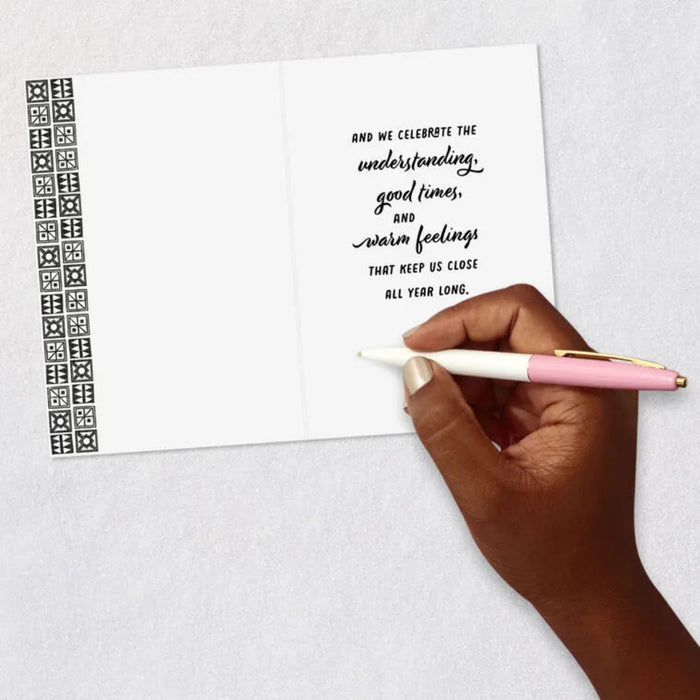 AND WE CELEBRATE THE
understanding,
good times,
AND
warm feelings
THAT KEEP US CLOSE
ALL YEAR LONG.